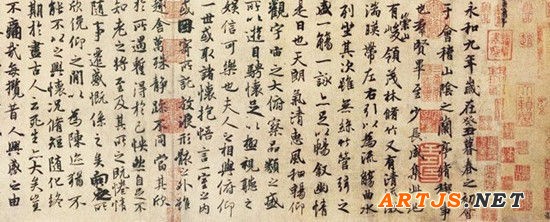 永和九年歲在癸丑暮春之初會
于會稽山陰之蘭亭脩稧事
也群賢畢至少長咸集此地
有崇山峻領茂林脩竹又有清流激
湍暎帶左右引以為流觴曲水
列坐其次雖無絲竹管弦之
盛一觴一詠亦足以暢敘幽情
是日也天朗氣清惠風和暢仰
觀宇宙之大俯察品類之盛
所以遊目騁懷足以極視聽之
娛信可樂也夫人之相與俯仰
一世或取諸懷抱悟言一室之內
或因寄所託放浪形骸之外雖
趣舍萬殊靜躁不同當其欣
於所遇暫得於己怏然自足不
知老之將至及其所之既惓情
隨事遷感慨係之矣向之所欣
俛仰之間以為陳迹猶不
能不以之興懷況脩短隨化終
期於盡古人云死生亦大矣豈
不痛哉每攬昔人興感之由
ARTJS.NET